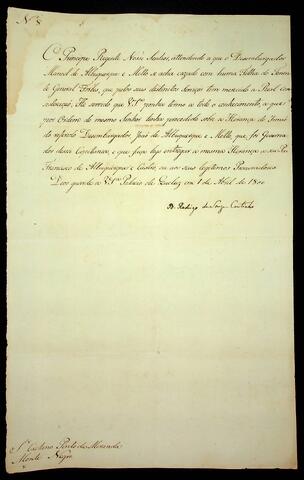 N.º 5
O Principe Regente Nosso Senhor, attendendo a que o Desembargador
Manoel de Albuquerque e Mello se acha cazado com huma Filha do Tenen
te General Forbes, que pelos seus distinctos Serviços tem merecido a Real Con
sideração; He servido que V S.ª ponha termo a todo o conhecimento, a que
por Ordem do mesmo Senhor tenha procedido sobre a Herança do Irmão
do referido Dezembargador João de Albuquerque e Mello, que foi Governa
dor dessa Capitania; e que faça logo entregar a mesma Herança a seu Pai
Francisco de Albuquerque e Castro, ou aos seus legitimos Procuradores
Deos guarde a V S.ª Palacio de Queluz em 1 de Abril de 1800
D. Rodrigo de Souza Coutinho
S.r Caetano Pinto de Miranda
Monte Negro